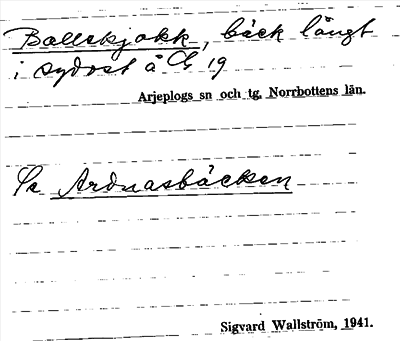 Ballekjokk, bäck långt
i sydost å Cg 19
Arjeplogs sn och tg, Norrbottens län.
Se Ardnasbäcken
Sigvard Wallström, 1941.